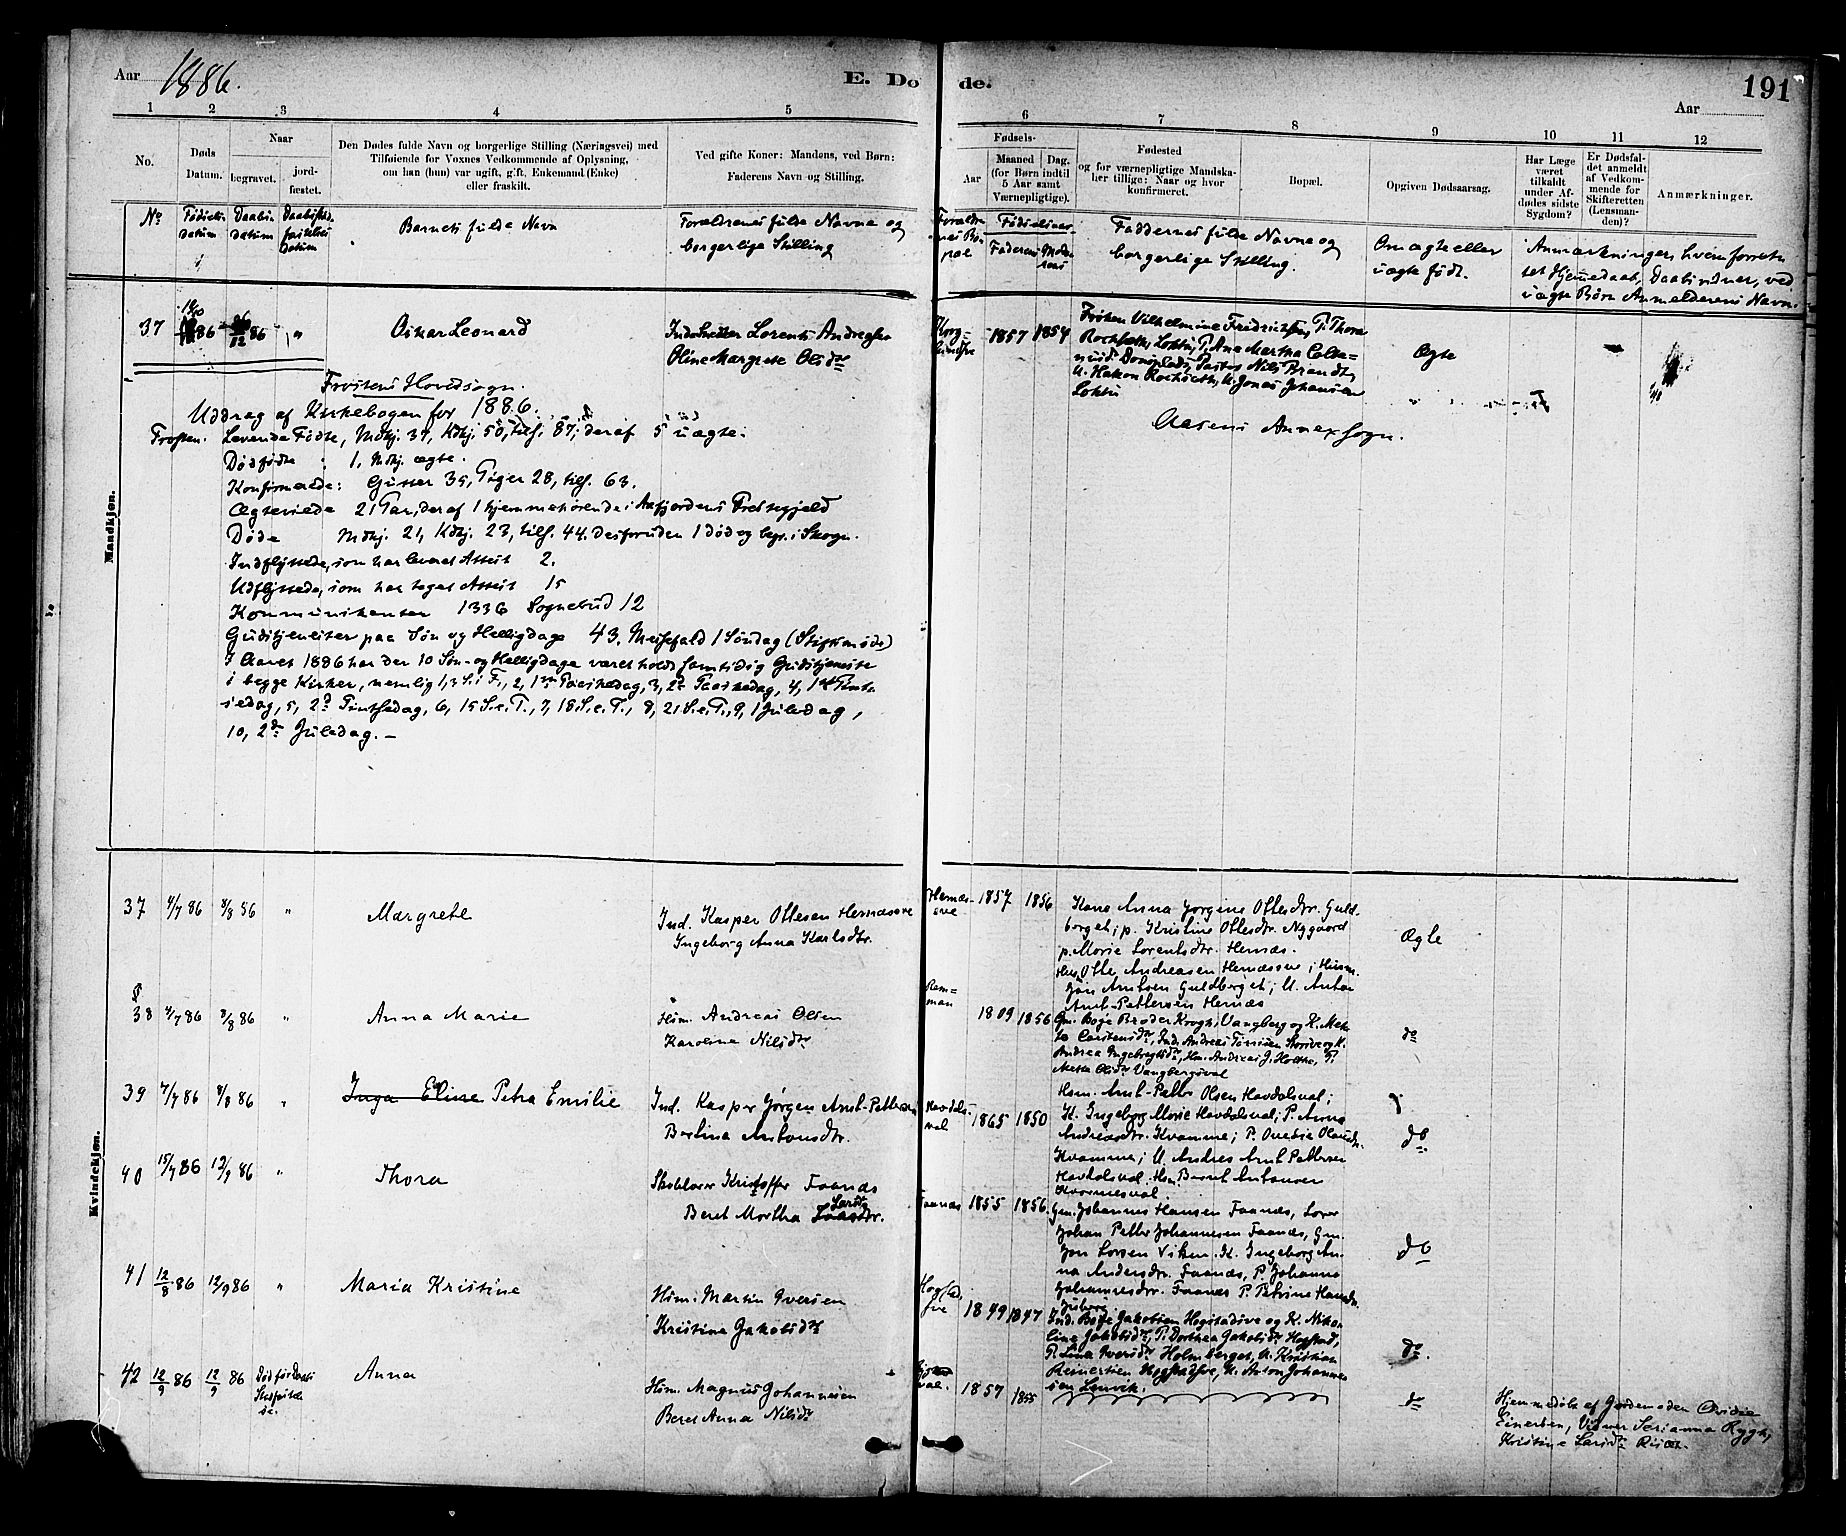 Aar 1886. E. Do de. 191
Aar
1 2 3 4 5 6 7 8 9 10 11 12
No.
Døds Datum.
Naar
begravet.
jordfæstet.
Den Dødes fulde Navn og borgerlige Stilling (Næringsvei) med
Tilføiende for Voxnes Vedkommende af Oplysning,
om han (hun) var ugift, gift, Enkemand (Enke)
eller fraskilt.
Ved gifte Koner: Mandens, ved Børn:
Faderens Navn og Stilling.
Fødsels-
Aar
Maaned
(for Børn indtil
5 Aar samt
Værnepligtige).
Dag.
Fødested
og for værnepligtige Mandskaber tillige: Naar og hvor
konfirmeret.
Bopæl.
Opgiven Dødsaarsag.
Har Læge
været
tilkaldt
under Afdødes sidste
Sygdom?
Er Dødsfaldet anmeldt
af Vedkommende for
Skifteretten
(Lensmanden)?
Anmærkninger.
No Fødsels datum Daabsdatum
Barnets fulde Navn
Forældrenes fulde Navne og
borgerlige Stilling
Forældrenes Bopæl
Fødselsaar
Faderens Moderens
Faddernes fulde Navne og
borgerlige Stilling.
Om ægte eller
uægte født.
Anmærkninger, hvem forrettet Hjemmedaab, Daabsvidner, ved
uægte Børn Anmelderens Navn.
Mandkjøn.
37 86 26/12 86 " Oskar Leonard
Lorents Andreas
Oline Margrete Olsdtr
1857 1854
Frøken Vilhelmine Fredrichsen, P. Thora
Rochseth, Loktu, P. Ane Martha
Pastor Nils Brandt,
U. Hakon Rochseth, U. Jonas Johansen
Loktu
Ægte
Frostens Hovedsogn.
Uddrag af Kirkebogen for 1886.
Aasens Annexsogn.
Frosten. Levende Fødte, Mdkj. 37, Kdkj. 50, tils. 87, deraf 5 uægte.
Dødfødte 1, Mdkj. ægte.
Konfirmerede: Gutter 35, Piger 28, tils. 63.
Ægteviede 21 Par, deraf 1 hjemmehørende i Aafjordens Prestegjeld
Døde Mdkj. 21, Kdkj. 23, tils. 44. Desforuden 1 død og begr. i Skogn.
Indflyttede, som har leveret Attest 2.
Udflyttede, som har taget Attest 15
Kommunikanter 1336 Sognebud 12
Gudstjenester paa Søn og Helligdage 43. Messefald 1 Søndag (Stiftsmøde)
I Aaret 1886 har der 10 Søn- og Helligdage været holdt samtidig Gudstjeneste
i begge Kirker, nemlig 1, 3 S. i F., 2, 1ste Paaskedag, 3, 2d Paaskedag, 4, 1ste Pintsedag, 5, 2d Pintsedag, 6, 15 S.e.T., 7, 18 S.e.T., 8, 21 S.e.T., 9, 1 Juledag,
10, 2den Juledag. –
Kvindekjøn.
37 4/7 86 8/8 86 " Margrete
Ind. Kasper Ottesen Hernæsøre
Ingeborg Anna Karlsdtr.
1857 1856
Kone Anna Jorgine Ottesdtr. Guldberget; p. Kristine Ottesdtr. Nygaard
p. Marie Lorentsdtr. Hernæs.
Otte Andreasen Hernæsøre; Husm.
Jon Arntsen Guldberget; U. Anton
Arnt-Pettersen Hernæs
Ægte
38 4/7 86 8/8 86 " Anna Marie
Hsm. Andreas Olsen
Karoline Nilsdtr
1809 1856
Gm. Boje Broder Krogh, Vangberg og K.
Carstensdtr, Ind. Andreas
Andrea Ingebrigtsdtr, Hm. Andreas J. Holthe, P.
Meta Olsdtr Vangbergsval
do
39 7/7 86 8/8 86 " Inga Eline Petra Emilie
Ind. Kasper Jørgen Arnt-Pettersen
Berlina Antonsdtr.
Havdalsval 1865 1850
Hsm. Arnt-Petter Olsen Havdalsval;
K. Ingeborg Marie Havdalsval; P. Anna
Andreasdtr. Kvamme; P.
Kvamme; U. Andreas Arnt Pettersen
Havdalsval. Hsm. Bernt Antonsen
do
40 15/7 86 12/9 86 " Thora
Skolelærer Kristoffer Faanæs
Beret Martha Larsdtr.
Faanæs 1855 1856
Gm. Johannes Hansen Faanæs, Lærer
Johan Petter Johannesen Faanæs, Gm.
Jon Larsen Viken. K. Ingeborg Anna Andersdtr. Faanæs, P. Johanna
Johannesdtr. Faanæs P. Petrine
do
41 12/8 86 12/9 86 " Maria Kristine
Hsm. Martin Iversen
Kristina Jakobsdtr
1849 1847
Ind. Boje Jakobsen Hogstadøie og K. Nikoline Jakobsdtr, P. Dorthea Jakobsdtr Hogstad,
P. Lina Iversdtr Holmberget, U. Kristian
Reinertsen U. Anton Johannessen Lenvik.
do.
42 12/9 86 12/9 86 Anna
Hsm. Magnus Johannesen
Beret Anna Nilsdtr
1857 1855
do
Hjemmedøbt af Jordemoder
Einersen, Vidner Serianna Rygh,
Kristine Larsdtr